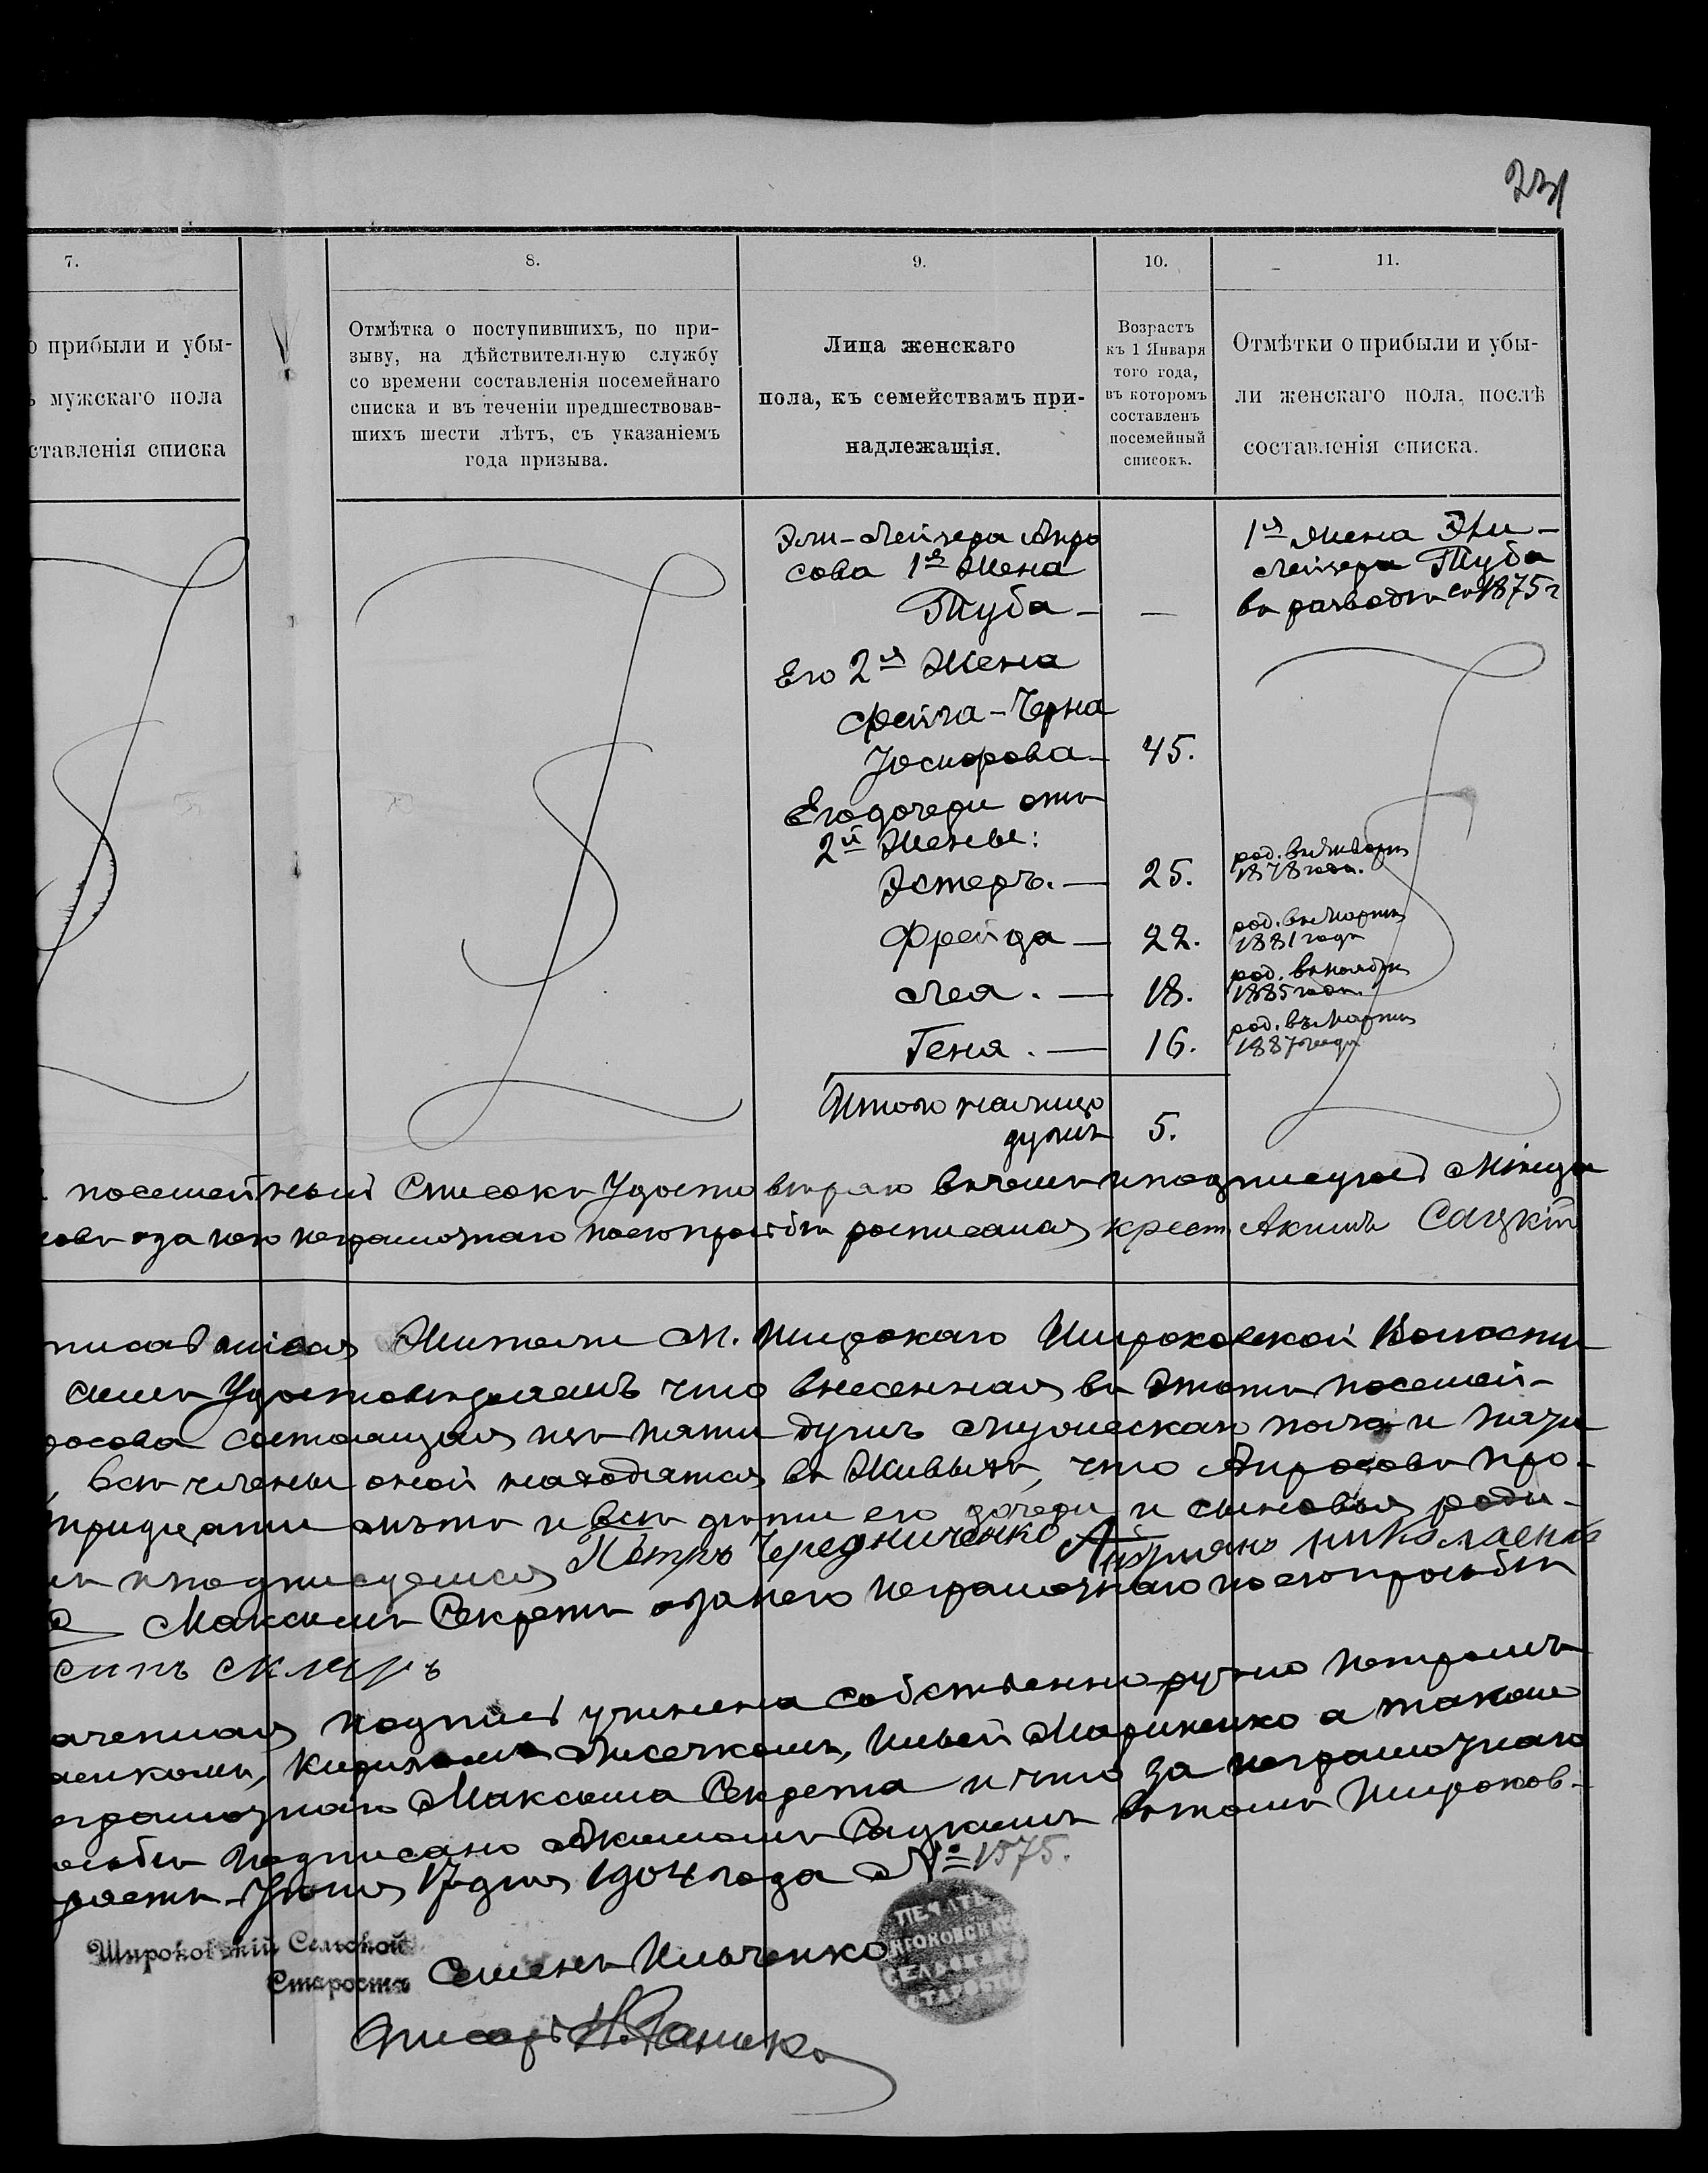 231
7.
о прибыли и убы-
ъ мужскаго пола
ставленія списка
8.
Отмѣтка о поступившихъ, по при-
зыву, на дѣйствительную службу
со времени составленія посемейнаго
списка и въ теченіи предшествовав-
шихъ шести лѣтъ, съ указаніемъ
года призыва.
9.
Лица женскаго
пола, къ семействамъ при-
надлежащія.
10.
Возрастъ
къ 1 Января
того года,
въ которомъ
составленъ
посемейный
списокъ.
11.
Отмѣтки о прибыли и убы-
ли женскаго пола, послѣ
составленія списка.
Эли-Лейзера Апро
сова 1я Жена
Туба — —
1я Жена Эли-
Лейзера Туба
въ разводѣ съ 1875 г
Его 2я Жена
Фейга-Черна
45.
Его дочери отъ
2й Жены:
Эстеръ. — 25.
род. въ
1878 года.
Фрейда — 22.
род. въ Мартѣ
1881 года
Лея. — 18.
род. въ ноябрѣ
1885 года.
Геня. — 16.
род. въ Мартѣ
1887 года
Итого налицо
душъ 5.
посемейный Списокъ Удостовѣряю въ чемъ и подписуюсь
а за него неграмотнаго по его просьбѣ росписался крест Акимъ Сацкій
Жители М. Широкаго Широковской Волости
симъ Удостовѣряемъ что внесенная въ этотъ посемей-
росова состоящая изъ пяти душъ мужескаго пола и пяти
, всѣ члены оной находятся въ Живыхъ, что Апросовъ про-
тридцати лѣтъ и всѣ дѣти его дочери и сыновья роди-
и подписуемся Петръ Чередниченко
Максимъ Секретъ а за него неграмотнаго по его просьбѣ
подпись учинена собственноручно Петромъ
аенкомъ, Кирилломъ Лисечкомъ, а также
еграмотнаго Максима Секрета и что за неграмотнаго
осьбѣ подписано Акимомъ Сацкимъ въ томъ Широков-
Іюня 17 дня 1904 года № 1575.
Широковскій Сельской
Староста Семенъ Ильченко
ПЕЧАТЬ
ШИРОКОВСКАГО
СЕЛЬСКАГО
СТАРОСТЫ
Писарь